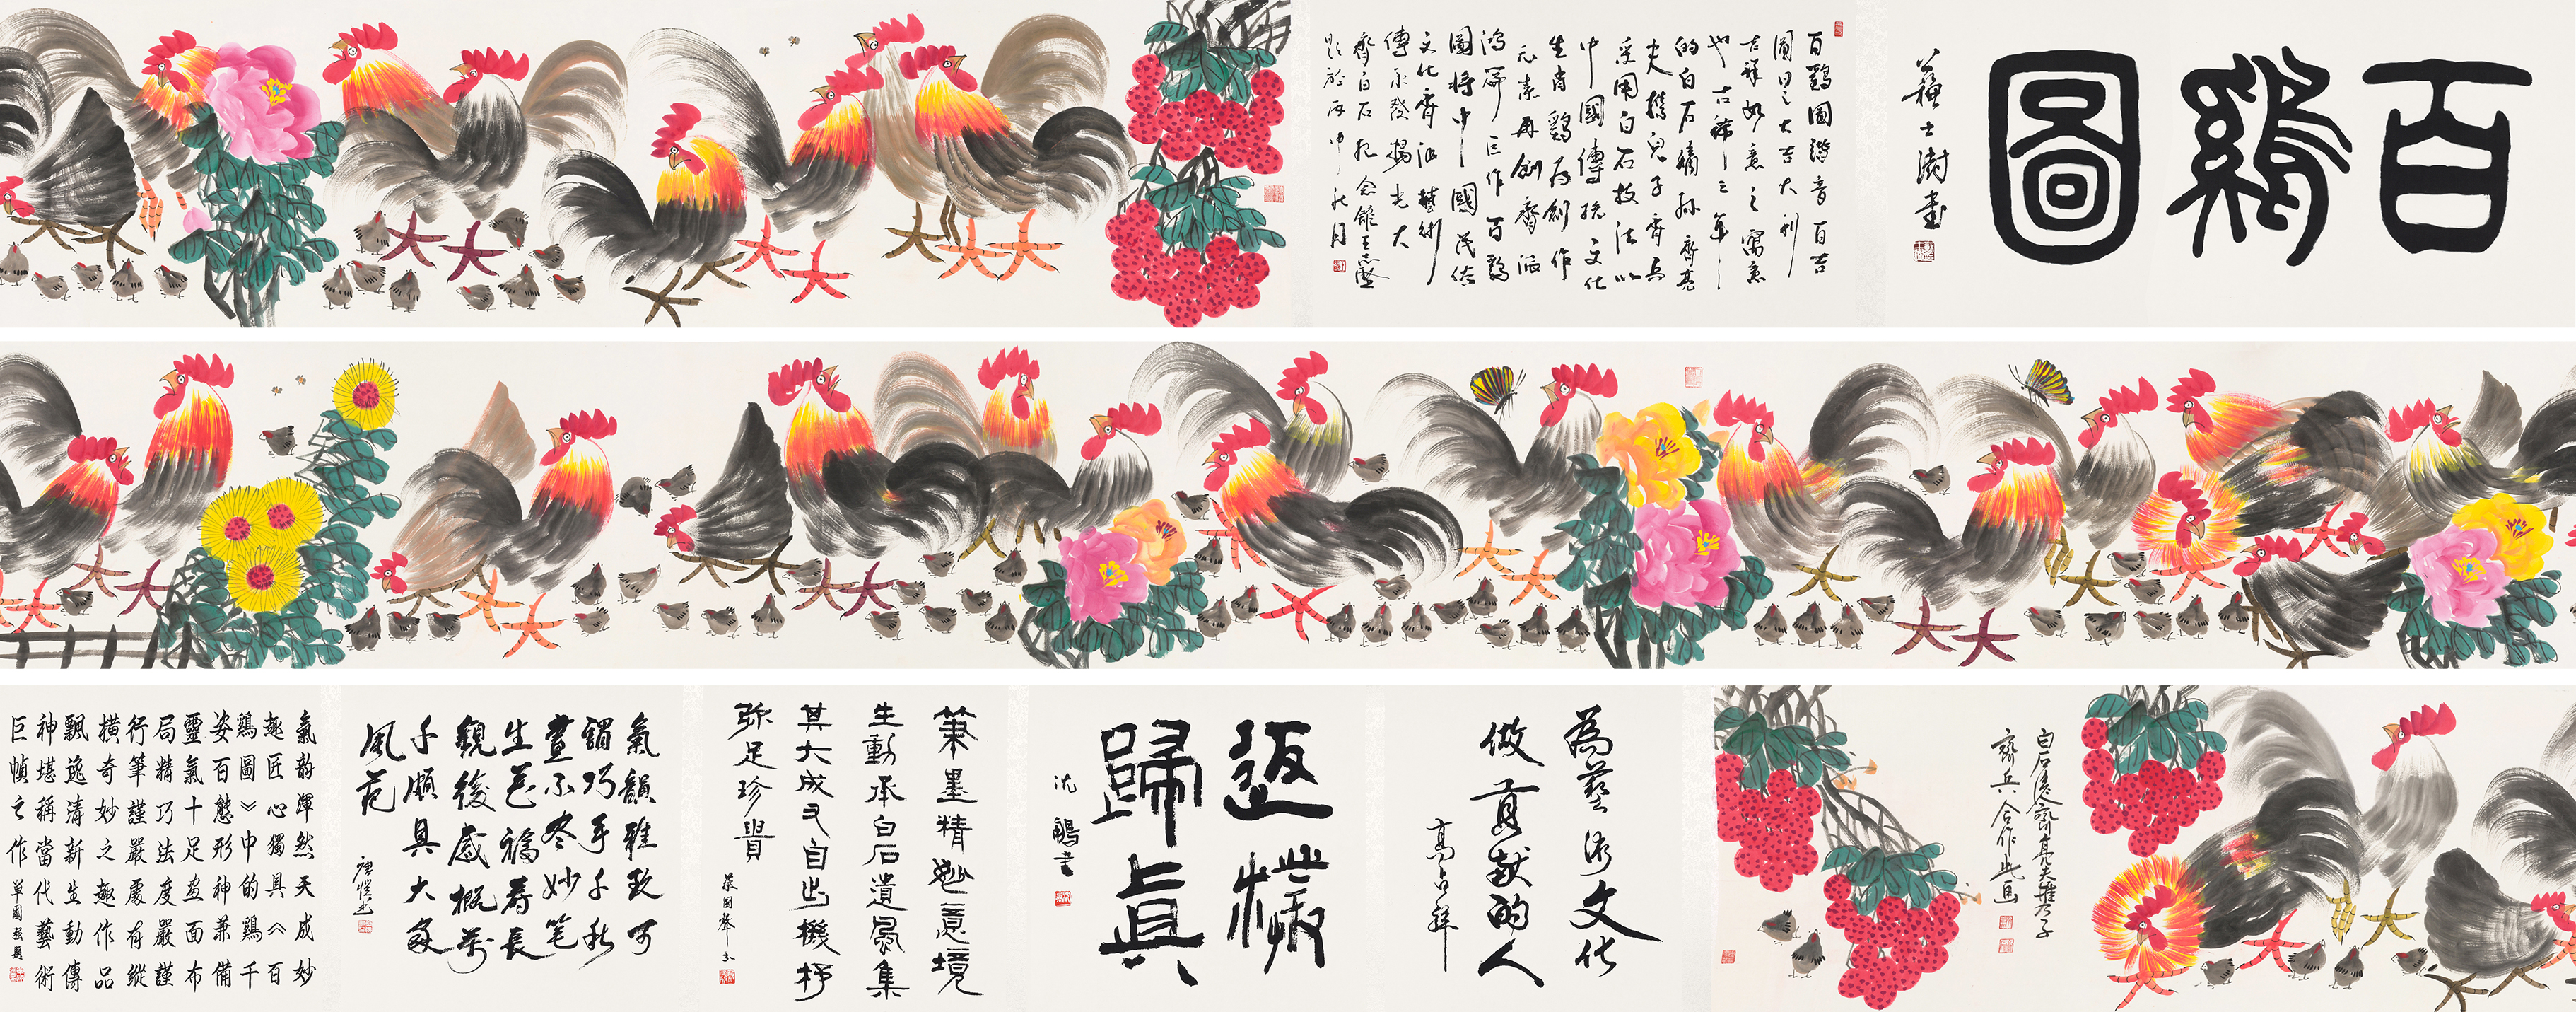 百鷄圖
蘇士澍書
百鷄圖諧音百吉
圖曰之大吉大利
吉祥如意之寓意
也古稀之年
的白石嫡孫齊亮
夫攜兒子齊兵
采用白石技法以
中國傳統文化
生肖鷄为創作
元素再創齊派
鴻篇巨作百鷄
圖將中國民俗
文化齊派藝術
傳承發揚光大
齊白石紀念館王志堅
題於丙申秋月
白石後裔齊亮夫攜子
齊兵合作此画
為藝術文化
做貢献的人
高占祥
返樸
歸真
沈鵬書
筆墨精妙意境
生動承白石遺風集
其大成又自出機杼
弥足珍貴
蔡國聲
氣韻雅致可
謂巧手千秋
畫不尽妙笔
生花福寿長
觀後感概萬
千頗具大家
風范
氣韵渾然天成妙
趣匠心獨具《百
鷄圖》中的鷄千
姿百態形神兼備
靈氣十足画面布
局精巧法度嚴謹
行筆謹嚴處有縱
橫奇妙之趣作品
飄逸清新生動傳
神堪稱當代藝術
巨幀之作
單國强題